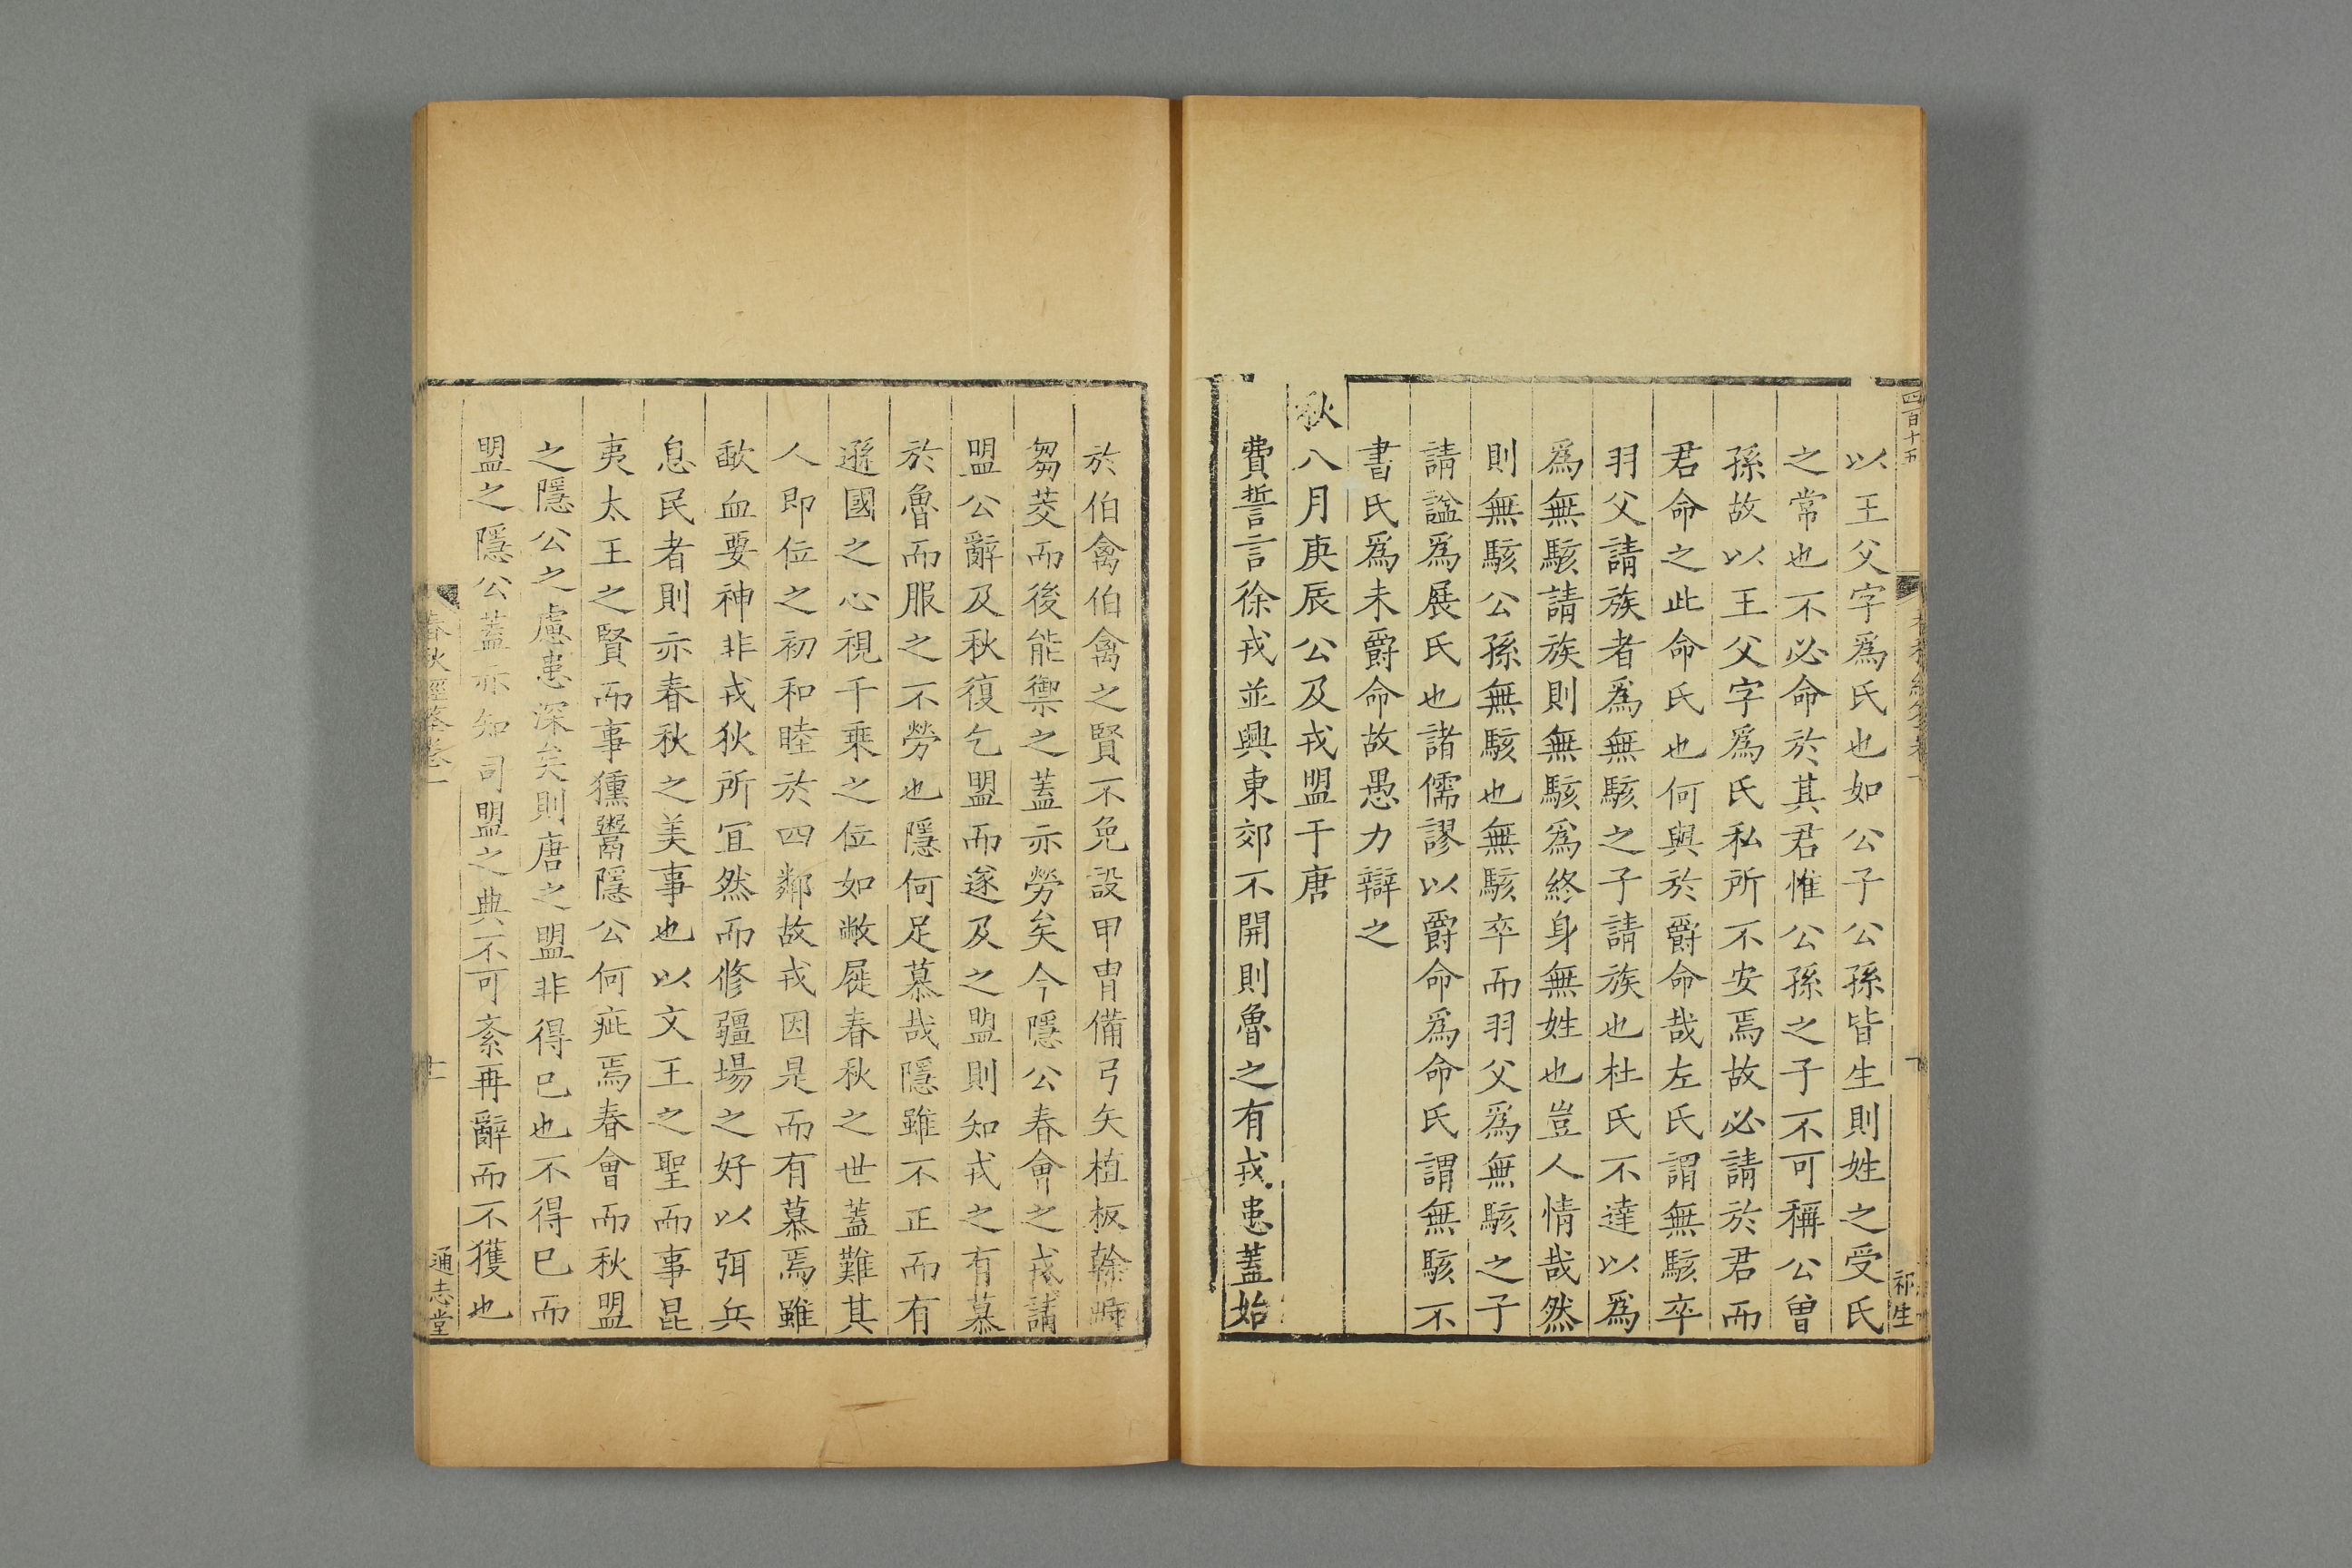 四百十五
祁生
以王父字爲氏也如公子公孫皆生則姓之受氏
之常也不必命於其君惟公孫之子不可稱公曾
孫故以王父字爲氏私所不安焉故必請於君而
君命之此命氏也何與於爵命哉左氏謂無駭卒
羽父請族者爲無駭之子請族也杜氏不達以爲
爲無駭請族則無駭爲終身無姓也豈人情哉然
則無駭公孫無駭也無駭卒而羽父爲無駭之子
請諡爲展氏也諸儒謬以爵命爲命氏謂無駭不
書氏爲未爵命故愚力辯之
秋八月庚辰公及戎盟于唐
費誓言徐戎並興東郊不開則魯之有戎患蓋始
於伯禽伯禽之賢不免設甲冑備弓矢植板榦峙
芻茭而後能禦之蓋亦勞矣今隱公春會之戎請
盟公辭及秋復乞盟而遂及之盟則知戎之有慕
於魯而服之不勞也隱何足慕哉隱雖不正而有
遜國之心視千乘之位如敝屣春秋之世蓋難其
人即位之初和睦於四鄰故戎因是而有慕焉雖
歃血要神非戎狄所宜然而修疆場之好以弭兵
息民者則亦春秋之美事也以文王之聖而事昆
夷太王之賢而事獯鬻隱公何疵焉春會而秋盟
之隱公之慮患深矣則唐之盟非得已也不得已而
盟之隱公蓋亦知司盟之典不可紊再辭而不獲也
春秋經筌卷一
十二
通志堂